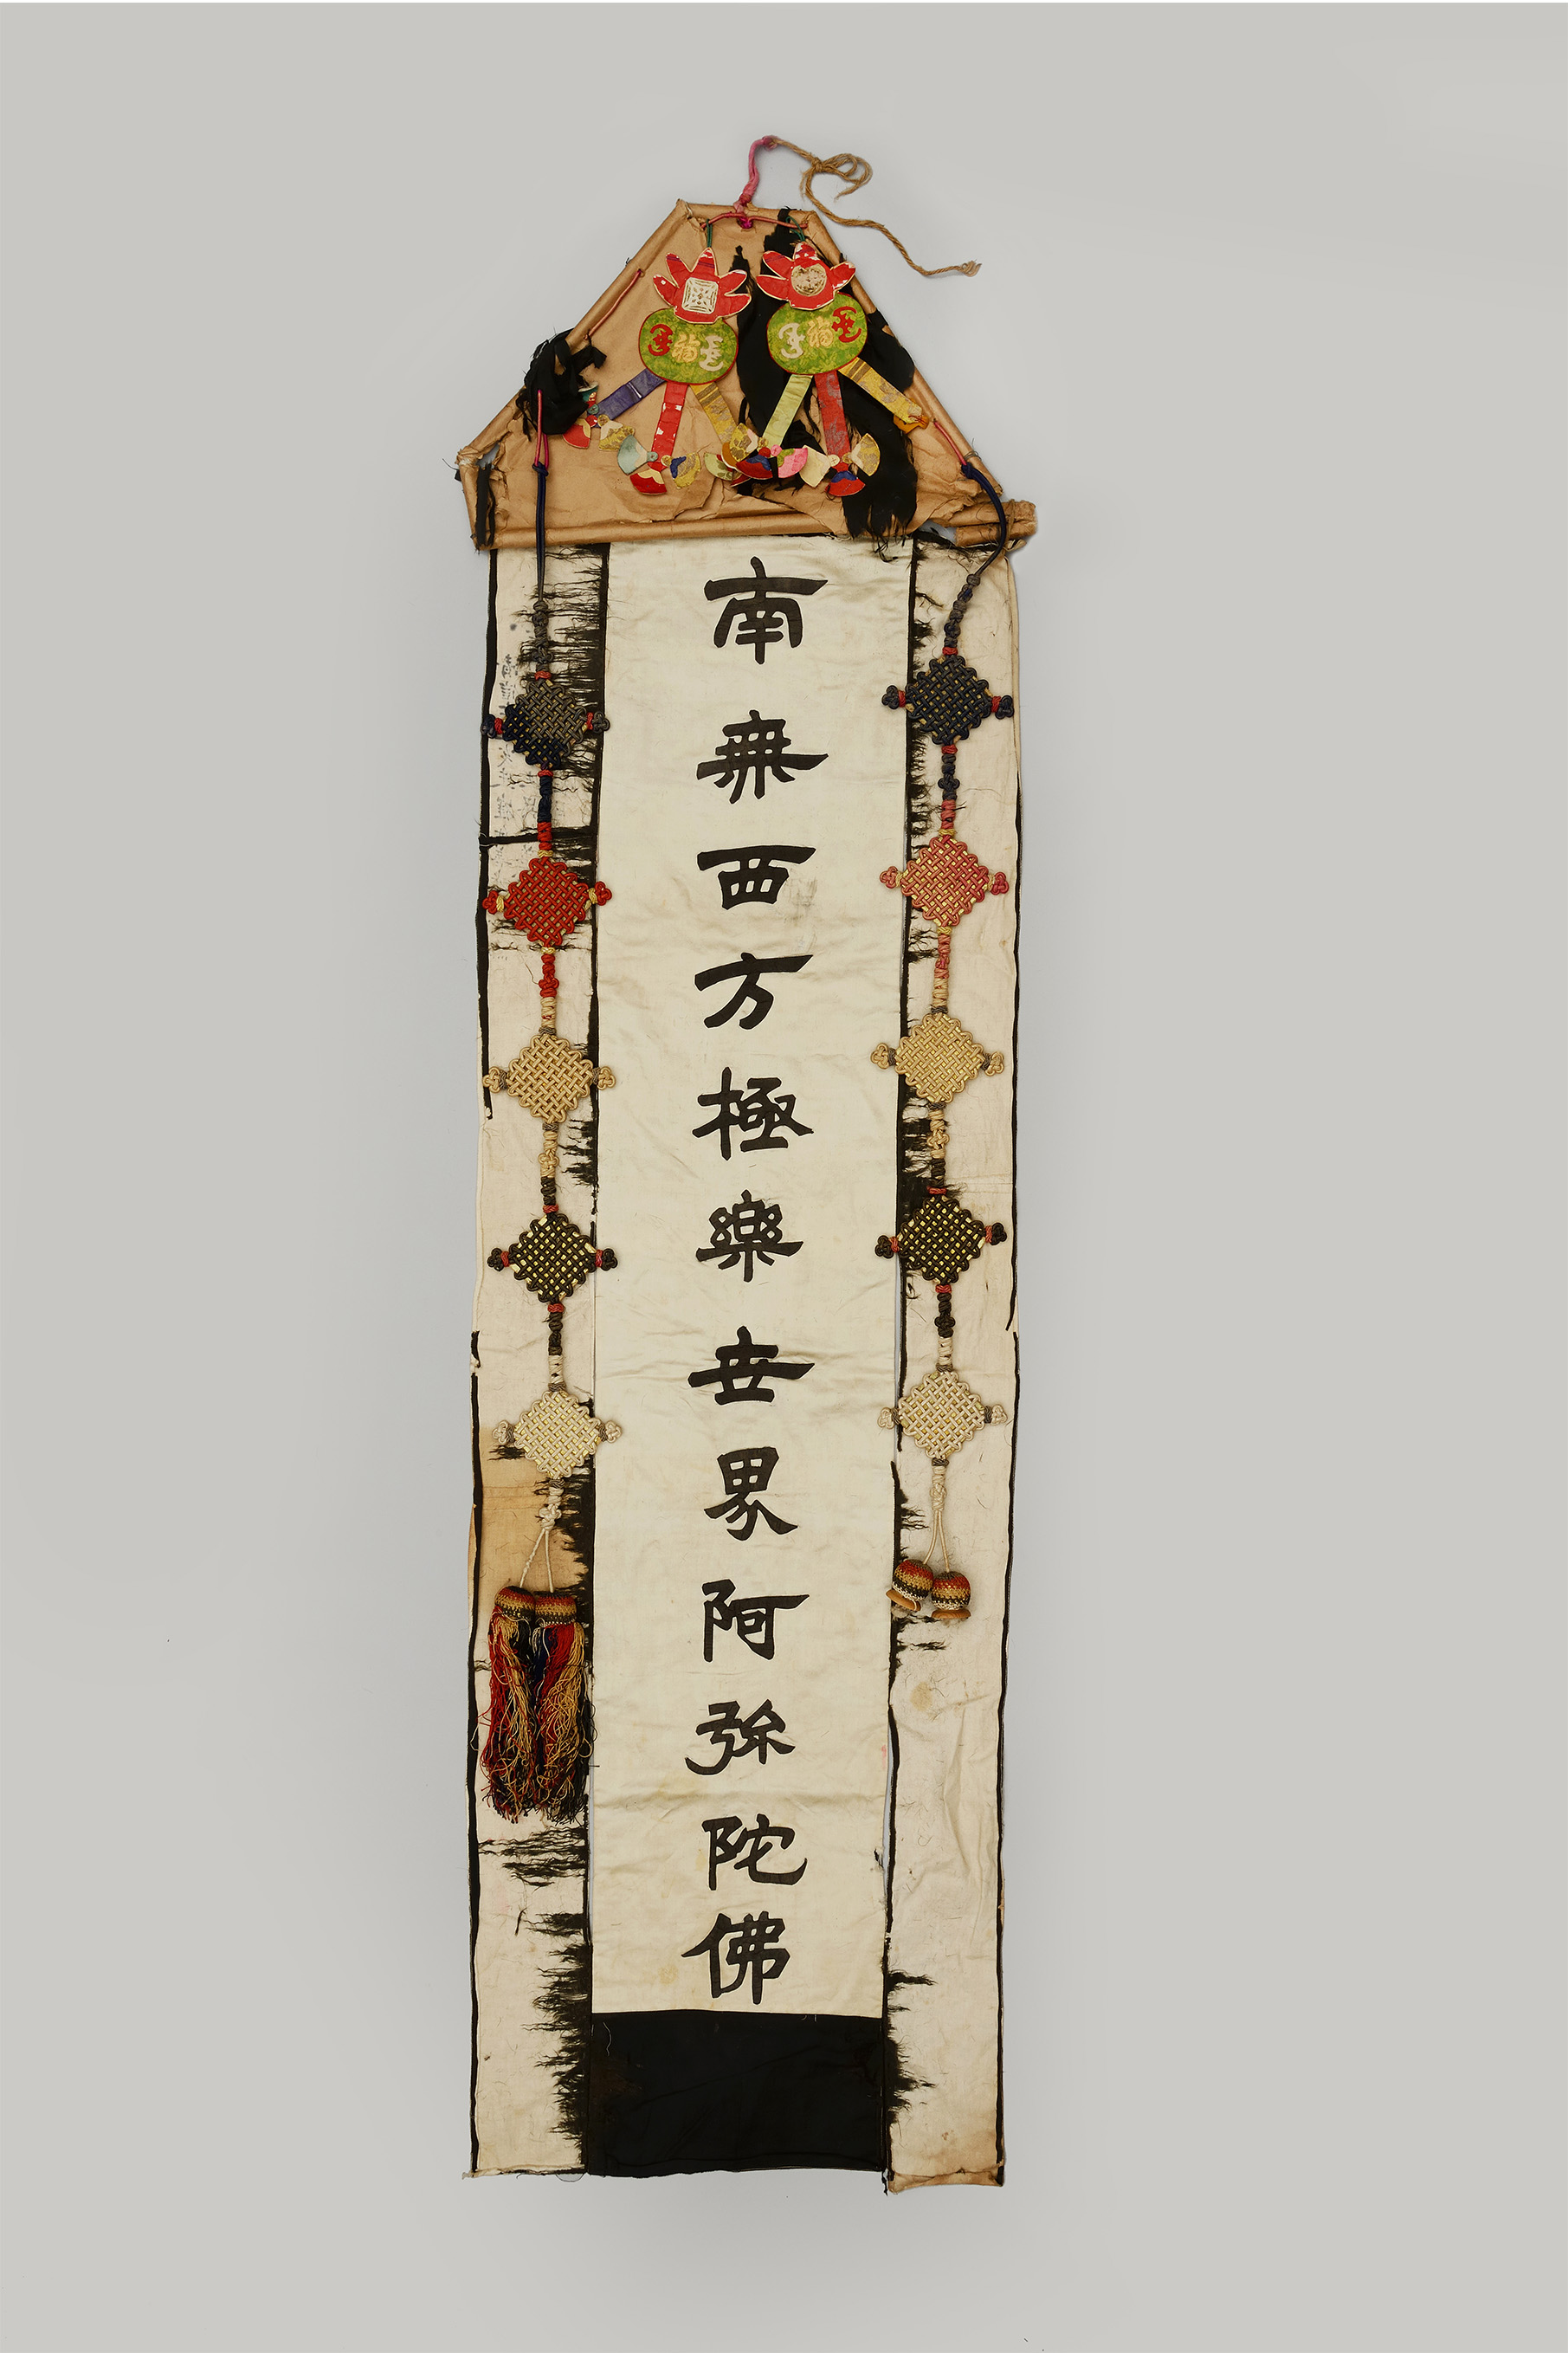 福
福
南無西方極樂世界阿弥陀佛